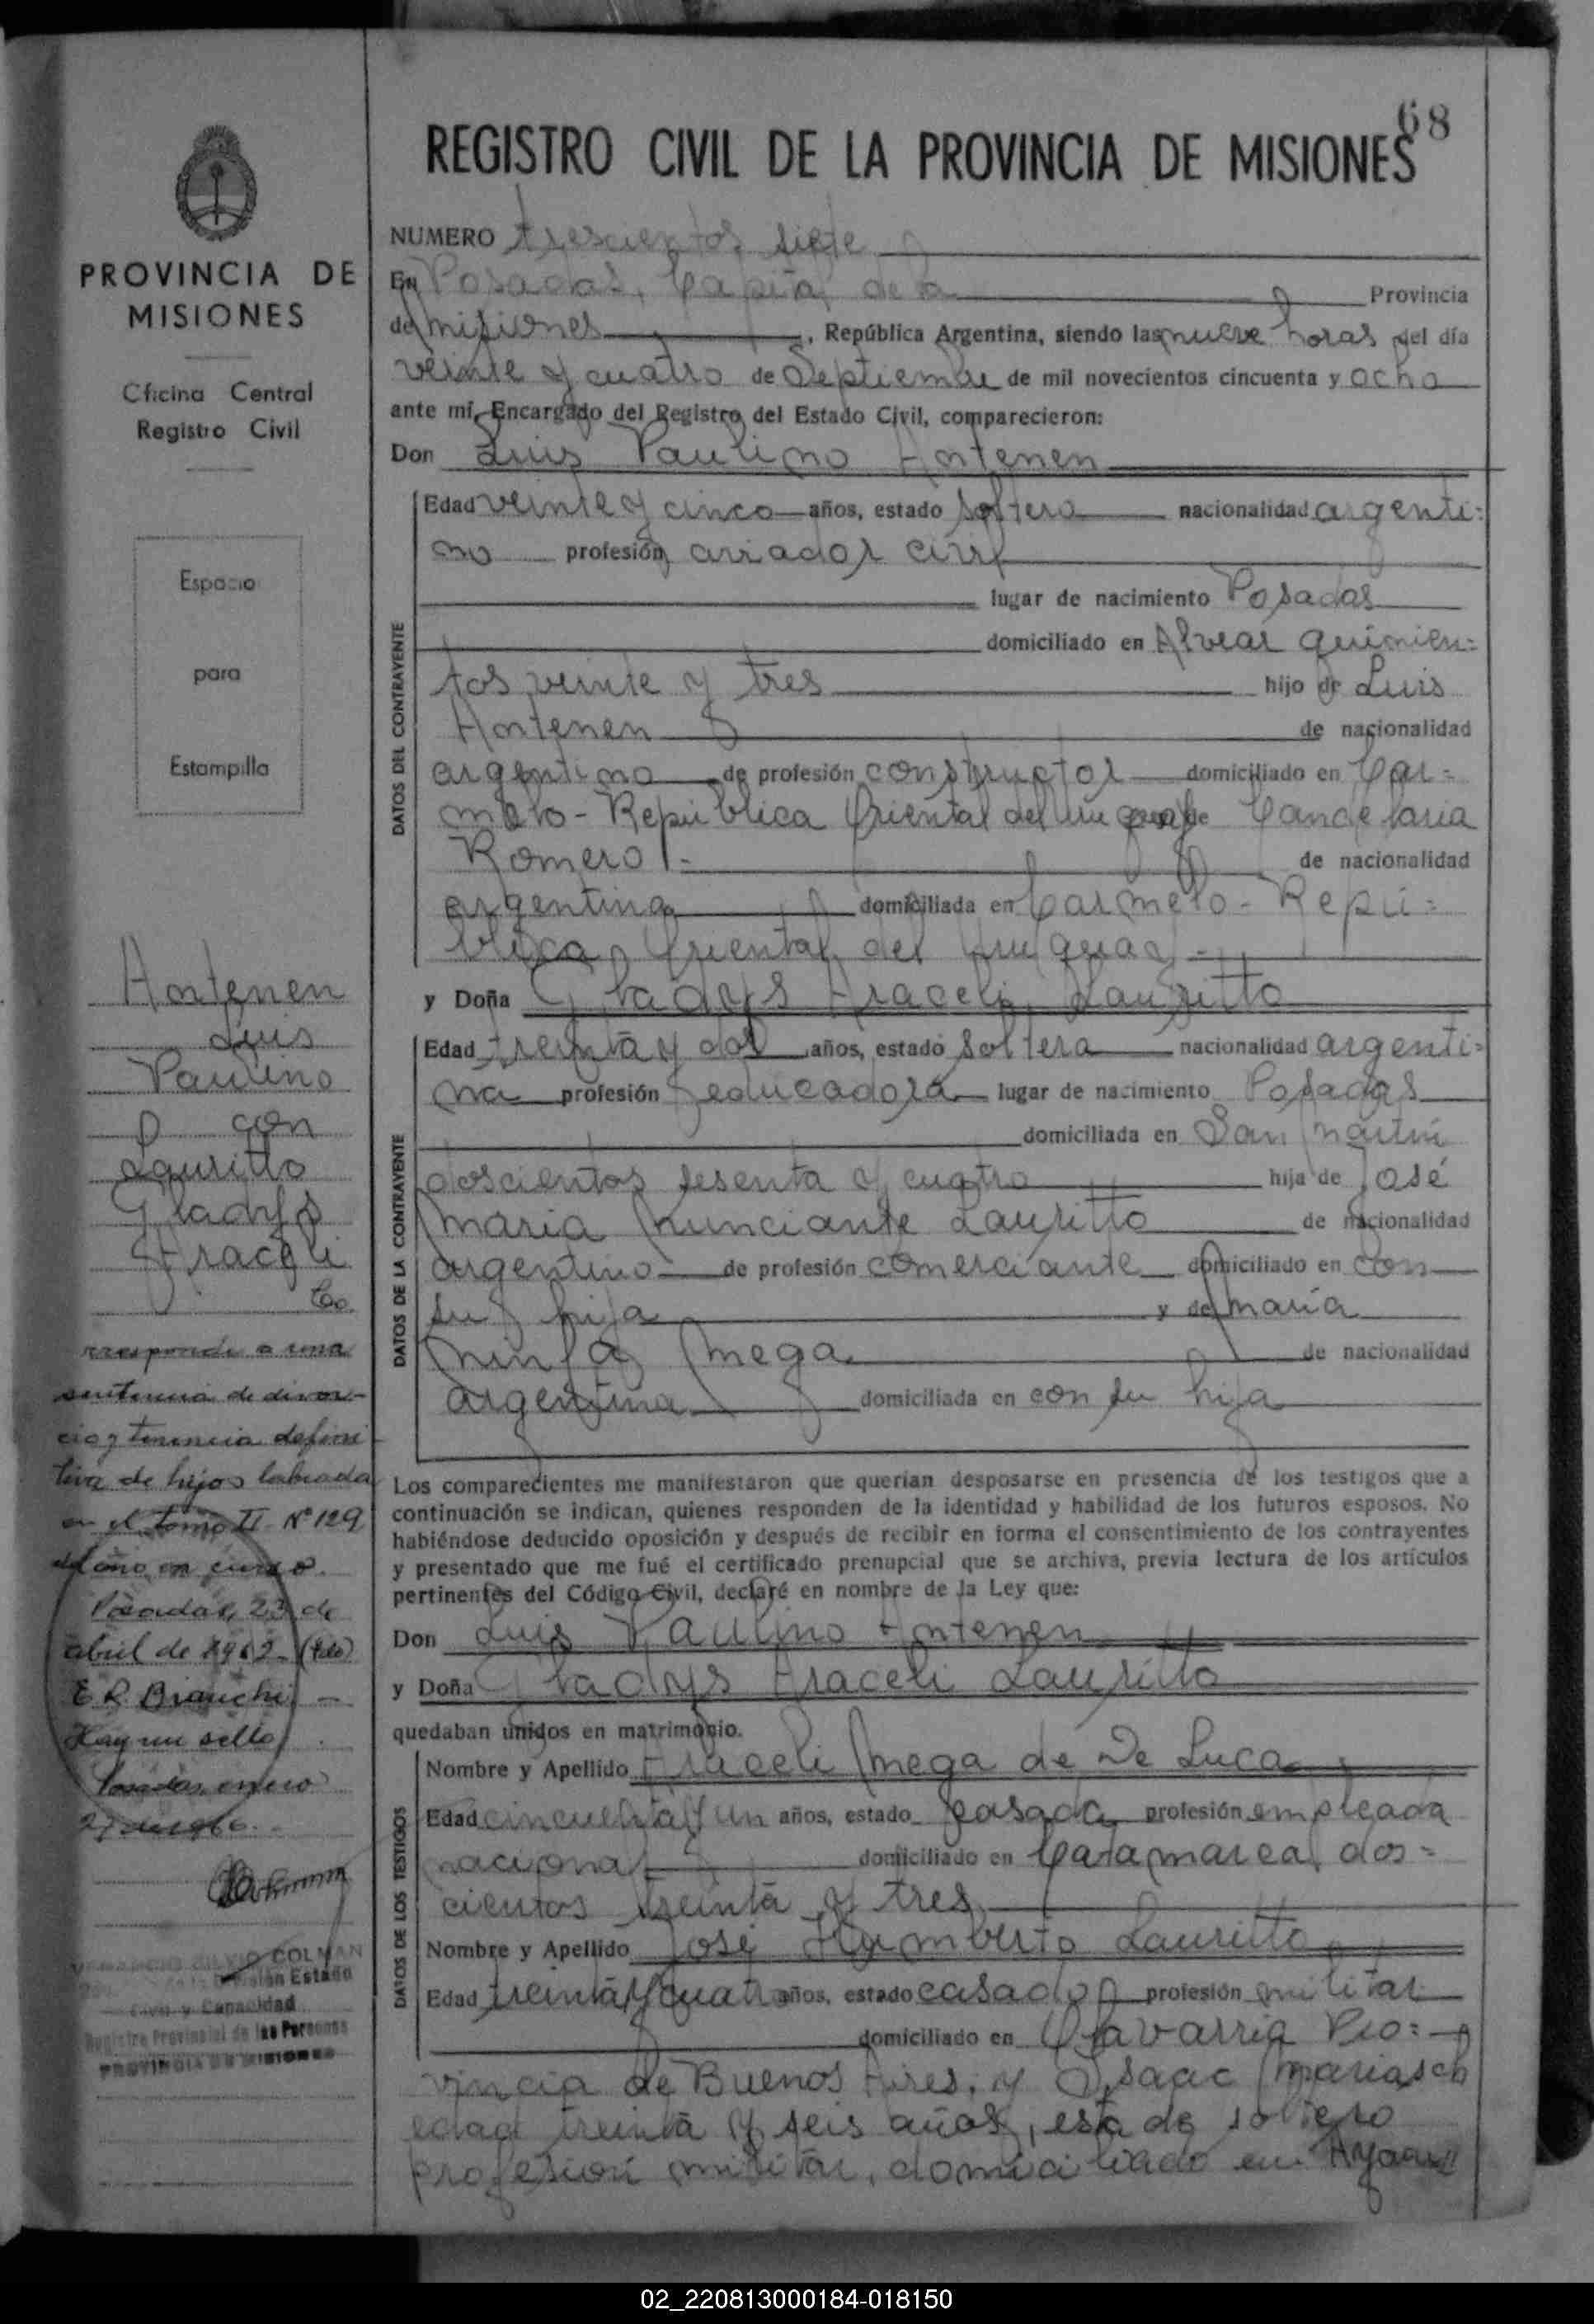 68
REGISTRO CIVIL DE LA PROVINCIA DE MISIONES
PROVINCIA DE
MISIONES
Oficina Central
Registro Civil
Espacio
para
Estampilla
Hontenen
Luis
Paulino
con
Lauritto
Gladys
Araceli
Co
rresponde a una
sentencia de divor-
cio y tenencia defini
tiva de hijos labrada
en el tomo II Nº 129
del año en curso.
Posadas, 23 de
abril de 1962. (Fdo)
E R Bianchi -
Hay un sello
Posadas, enero
27 de 1966.
COLMAN
División Estado
Civil y Capacidad
Registro Provincial de las Personas
PROVINCIA DE MISIONES
NUMERO trescientos siete
En Posadas, Capital de la Provincia
de misiones, República Argentina, siendo las nueve horas del día
veinte y cuatro de Septiembre de mil novecientos cincuenta y ocho
ante mí, Encargado del Registro del Estado Civil, comparecieron:
Don Luis Paulino Hontenen
DATOS DEL CONTRAYENTE
Edad veinte y cinco años, estado soltero nacionalidad argenti=
no profesión aviador civil
lugar de nacimiento Posadas
domiciliado en Alvear quinien=
tos veinte y tres hijo de Luis
Hontenen de nacionalidad
argentino de profesión constructor domiciliado en Car=
melo - República Oriental del Uruguay de Candelaria
Romero.- de nacionalidad
argentina domiciliada en Carmelo - Repú=
blica Oriental del Uruguay -
y Doña Gladys Araceli Lauritto
DATOS DE LA CONTRAYENTE
Edad treinta y dos años, estado soltera nacionalidad argenti=
na profesión educadora lugar de nacimiento Posadas
domiciliada en San Martín
doscientos sesenta y cuatro hija de José
maria nunciante Lauritto de nacionalidad
argentino de profesión comerciante domiciliado en con
su hija y de maría
ninfa mega de nacionalidad
argentina domiciliada en con su hija
Los comparecientes me manifestaron que querían desposarse en presencia de los testigos que a
continuación se indican, quienes responden de la identidad y habilidad de los futuros esposos. No
habiéndose deducido oposición y después de recibir en forma el consentimiento de los contrayentes
y presentado que me fué el certificado prenupcial que se archiva, previa lectura de los artículos
pertinentes del Código Civil, declaré en nombre de la Ley que:
Don Luis Paulino Hontenen
y Doña Gladys Araceli Lauritto
quedaban unidos en matrimonio.
DATOS DE LOS TESTIGOS
Nombre y Apellido Araceli mega de De Luca
Edad cincuenta y un años, estado casada profesión empleada
nacional domiciliado en Catamarca dos=
cientos treinta y tres
Nombre y Apellido José Humberto Lauritto
Edad treinta y cuatro años, estado casado profesión militar
domiciliado en Olavarria Pro=
vincia de Buenos Aires, y Isaac mariasch
edad treinta y seis años, estado soltero
profesión militar, domiciliado en
02_220813000184-018150